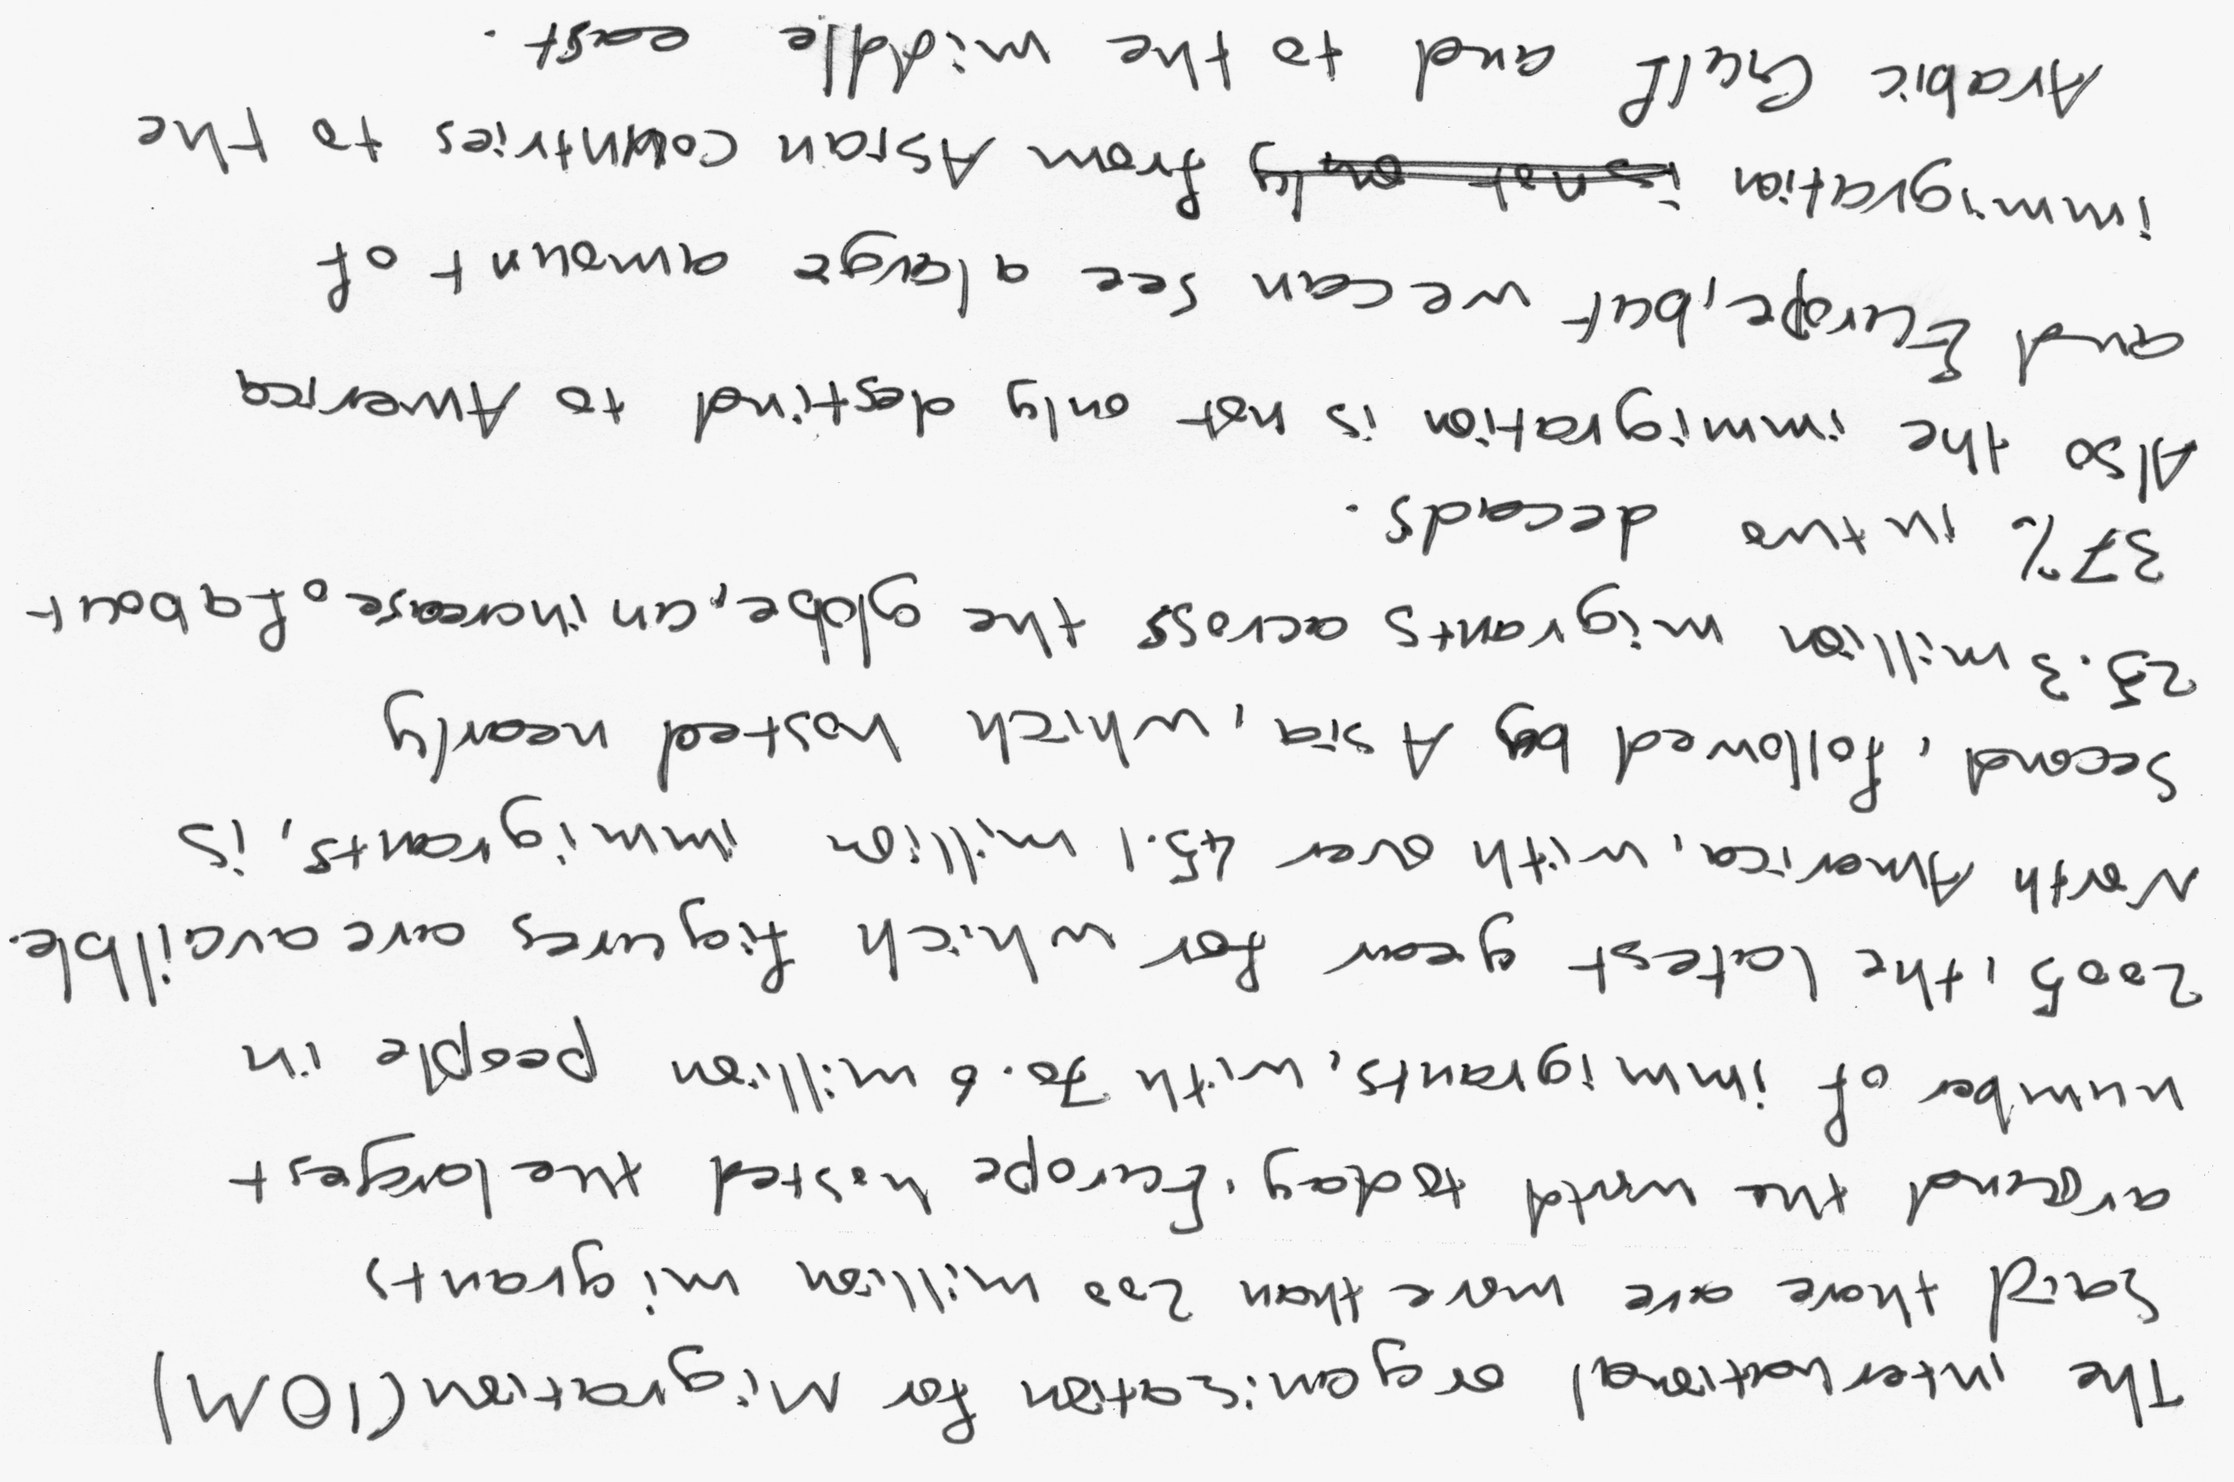 The international organization for Migration (IOM)
said there are more than 200 million migrants
around the world today. Europe hosted the largest
number of immigrants, with 70.6 million people in
2005, the latest year for which figures are availble.
North America, with over 45.1 million immigrants, is
second, followed by Asia, which hosted nearly
25.3 million migrants across the globe, an increase of about
37% in two decads.
Also the immigration is not only destind to America
and Europe, but we can see a large amount of
immigration is not only from Asian countries to the
Arabic Gulf and to the middle east.